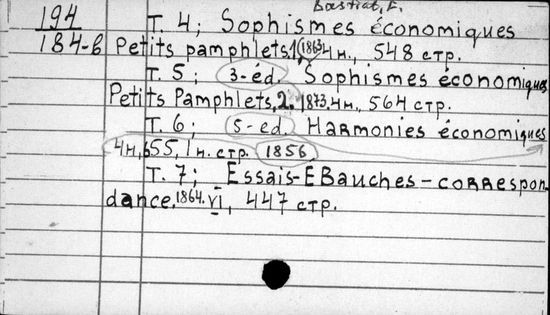 Bastiat, F.
194 T. 4; Sophismes économiques
184-6 Petits pamphlets, 1, 1863 4н., 548 стр.
T. 5; 3-éd. Sophismes économiques
Petits Pamphlets, 2. 1873. 4н., 564 стр.
T. 6; 5-ed. Harmonies économiques
4н., 655, 1н. стр. 1856.
T. 7; Essais-EBauches-correspon
dance. 1864. VI, 447 стр.